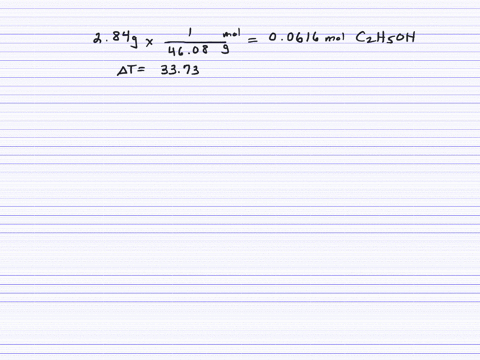 2.84g × 1 mol / 46.08 g = 0.0616 mol C2H5OH
ΔT = 33.73